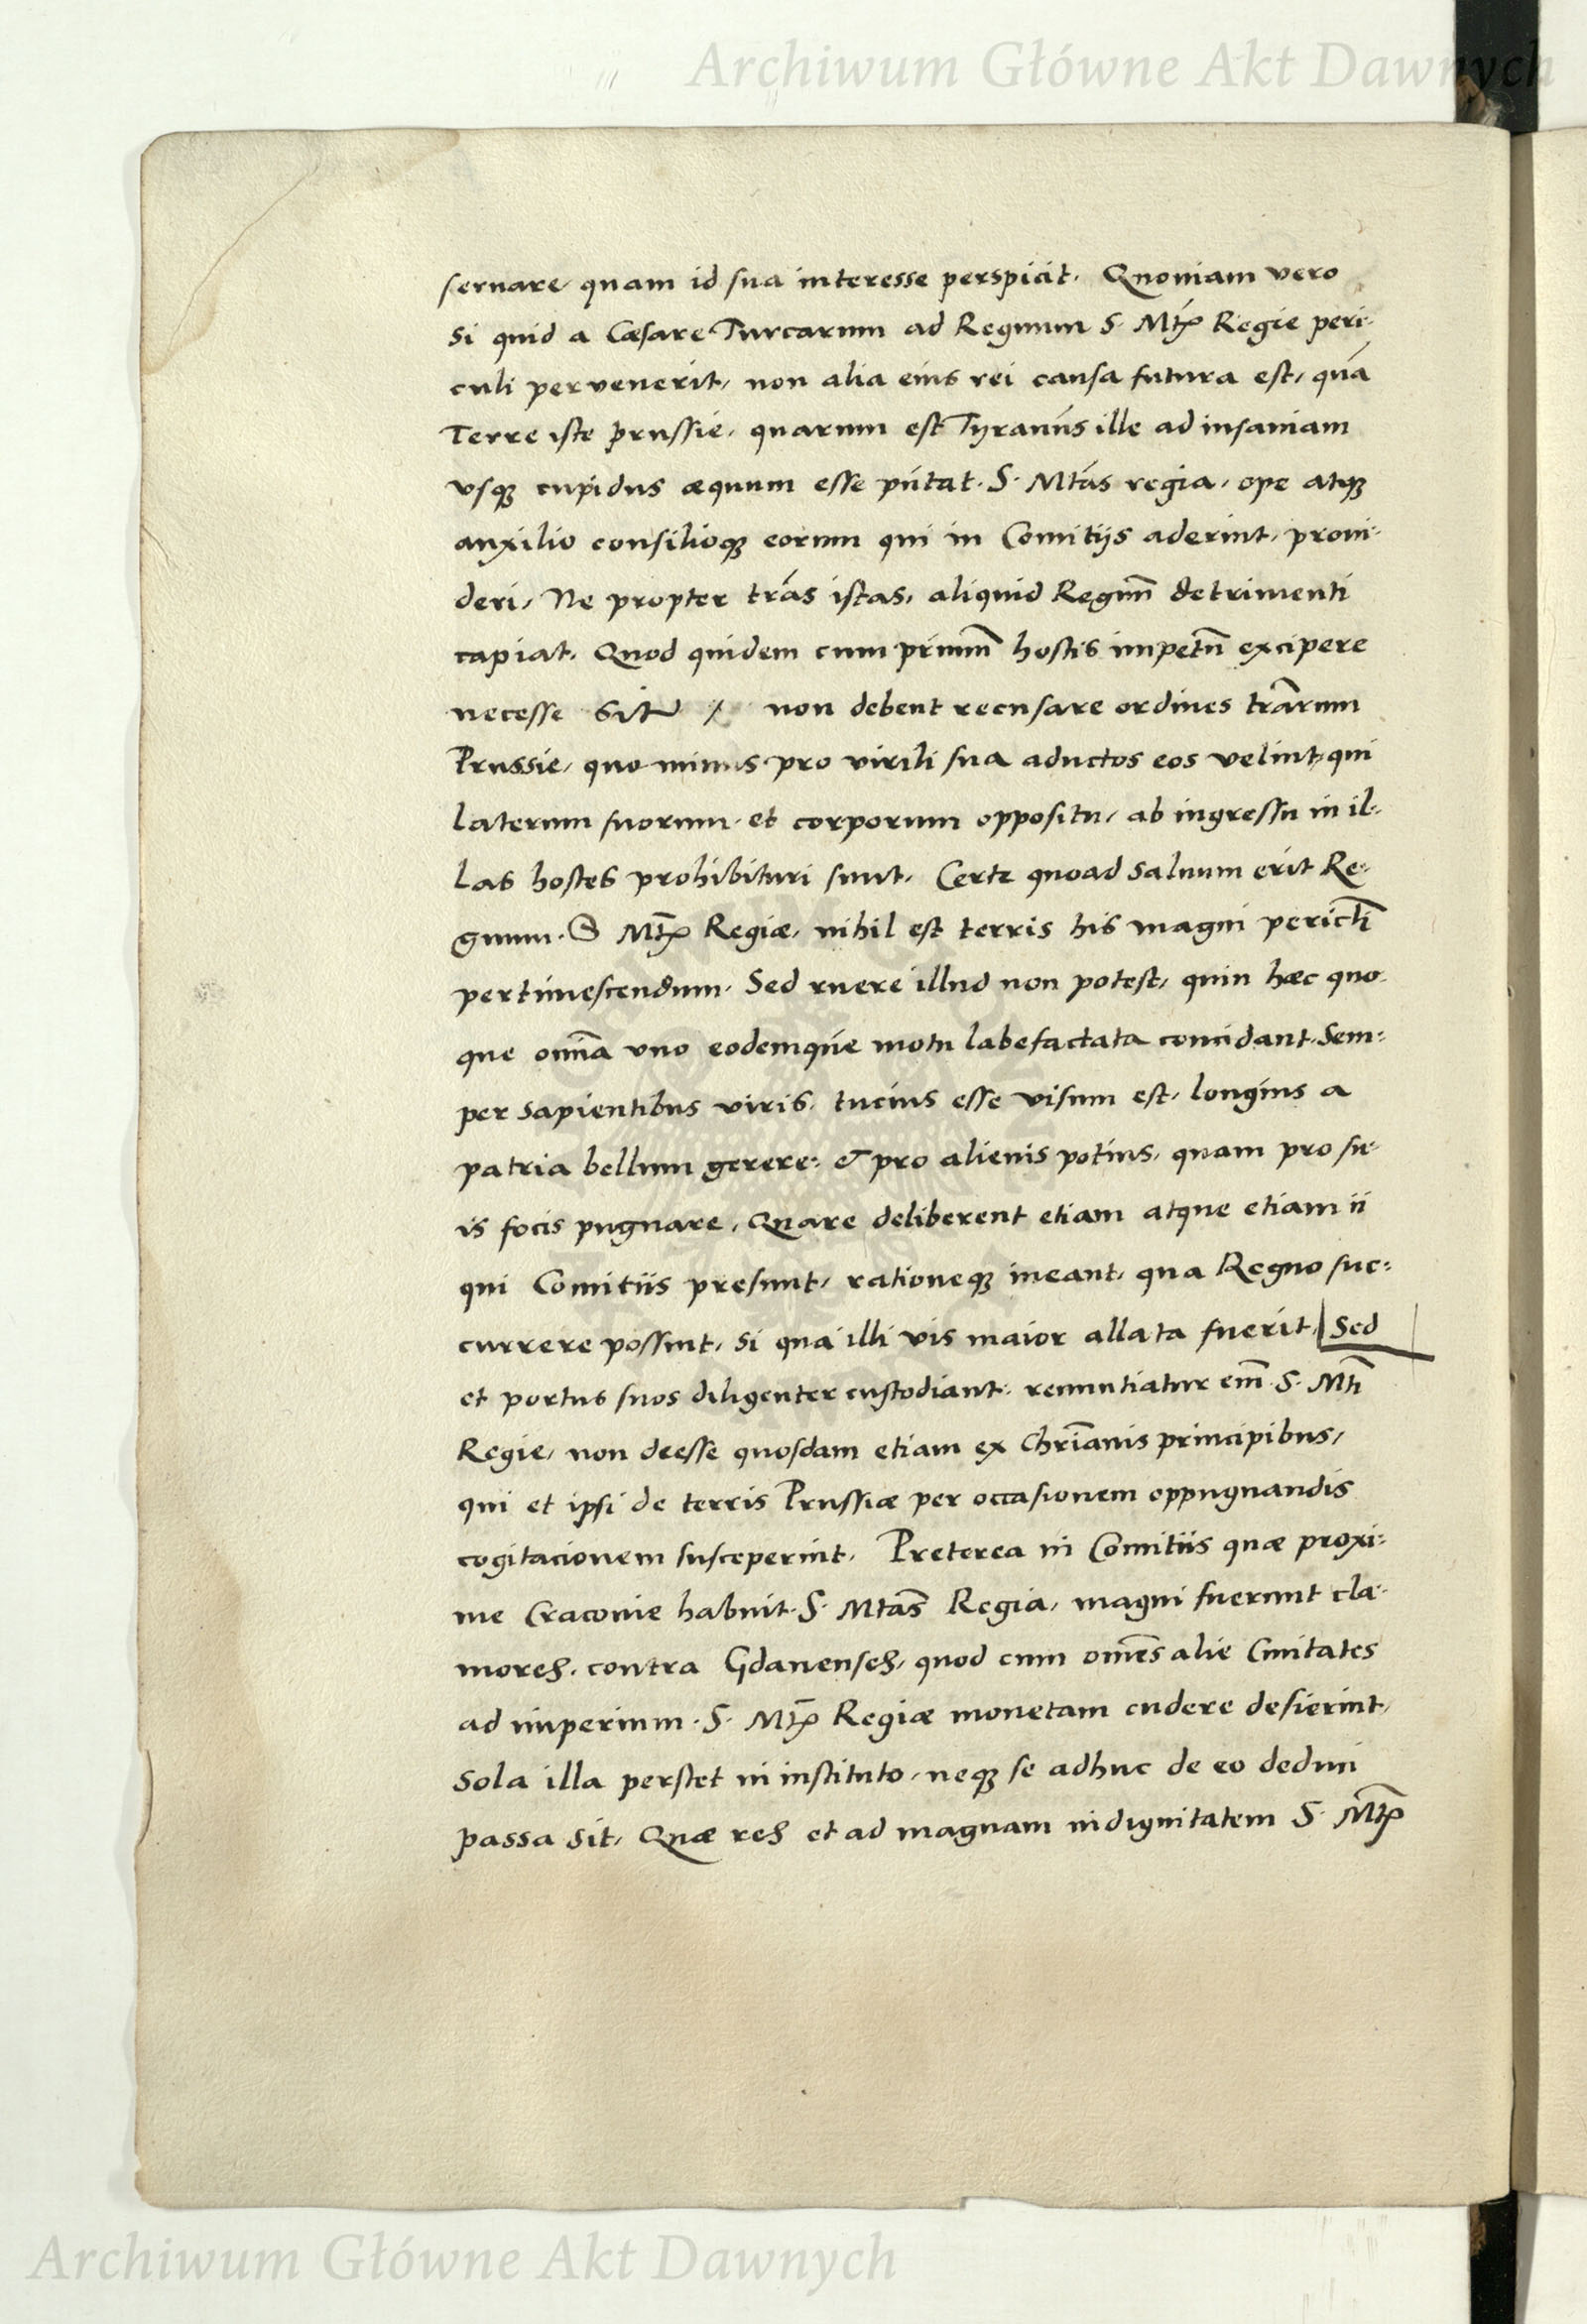 Archiwum Główne Akt Dawnych
seruare quam id sua interesse perspicit. Quoniam vero
si quid a Cæsare Turcarum ad Regnum S. Mtis Regie peri-
culi pervenerit, non alia eius rei causa futura est, quá
Terre iste prussie, quarum est Tyranús ille ad insaniam
vsque cupidus æquum esse pútat. S. Mtás regia, ope atque
auxilio consilioque eorum qui in Comitijs aderint, proui-
deri, Ne propter trás istas, aliquid Regnū detrimenti
capiat. Quod quidem cum primū hostis impetū excipere
necesse sit non debent recusare ordines trārum
Prussie, quo minus pro virili sua adiuctos eos velint, qui
laterum suorum et corporum oppositu, ab ingressu in il-
las hostes prohibituri sunt. Certe quoad saluum erit Re-
gnum S Mtis Regiæ, nihil est terris his magni pericli
pertimescendum. Sed ruere illud non potest, quin hæc quo-
que omīa vno eodemqúe motu labefactata concidant. Sem-
per sapientibus viris, tucius esse visum est, longius a
patria bellum gerere: & pro alienis potius, quam pro su-
is focis pugnare. Quare deliberent etiam atque etiam ii
qui Comitiis presunt, rationeque ineant, qua Regno suc-
currere possint, si qua illi vis maior allata fuerit, Sed
et portus suos diligenter custodiant: renuntiatur em̄ S. Mti
Regie, non deesse quosdam etiam ex Chrīanis principibus,
qui et ipsi de terris Prussiæ per occasionem oppugnandis
cogitacionem susceperint. Preterea in Comitiis quæ proxi-
me Cracouie habuit S. Mtās Regia, magni fuerunt cla-
mores, contra Gdanenses, quod cum omēs alie Ciuitates
ad imperium S. Mtis Regiæ monetam cudere desierint,
Sola illa perstet in instituto, neque se adhuc de eo deduci
passa sit, Quæ res et ad magnam indignitatem S. Mtis
Archiwum Główne Akt Dawnych